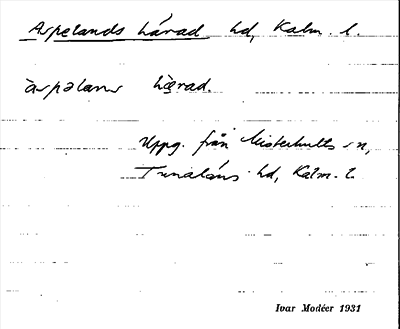 Aspelands härad hd, Kalm. l.
àspəlans hä̀rad.
Uppg. från Misterhults sn,
Tunaläns hd, Kalm. l.
Ivar Modéer 1931